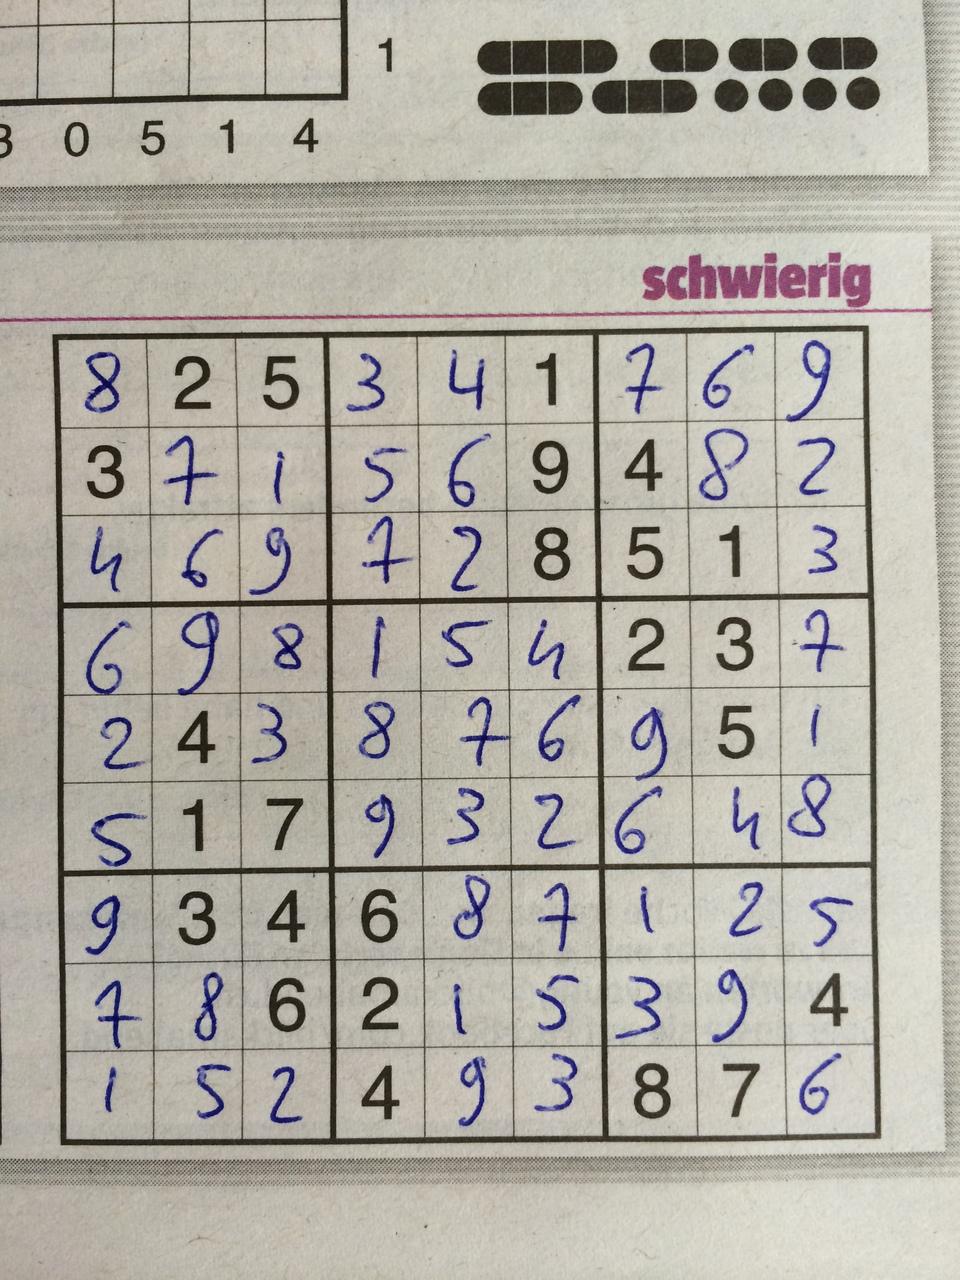 1
3 0 5 1 4
schwierig
8 2 5 3 4 1 7 6 9
3 7 1 5 6 9 4 8 2
4 6 9 7 2 8 5 1 3
6 9 8 1 5 4 2 3 7
2 4 3 8 7 6 9 5 1
5 1 7 9 3 2 6 4 8
9 3 4 6 8 7 1 2 5
7 8 6 2 1 5 3 9 4
1 5 2 4 9 3 8 7 6